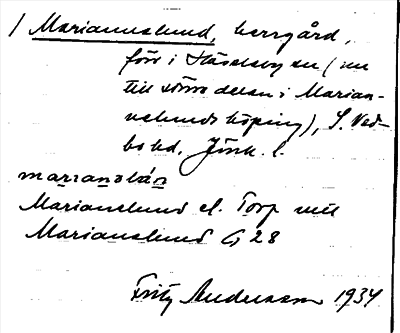 1 Mariannelund, herrgård,
förr i Hässleby sn (nu
till större delen i Marian-
nelunds köping), S. Ved-
bo hd, Jönk. l.
Mariannelund el. Torp inkl
Mariannelund G 28
Fritz Andersson 1934